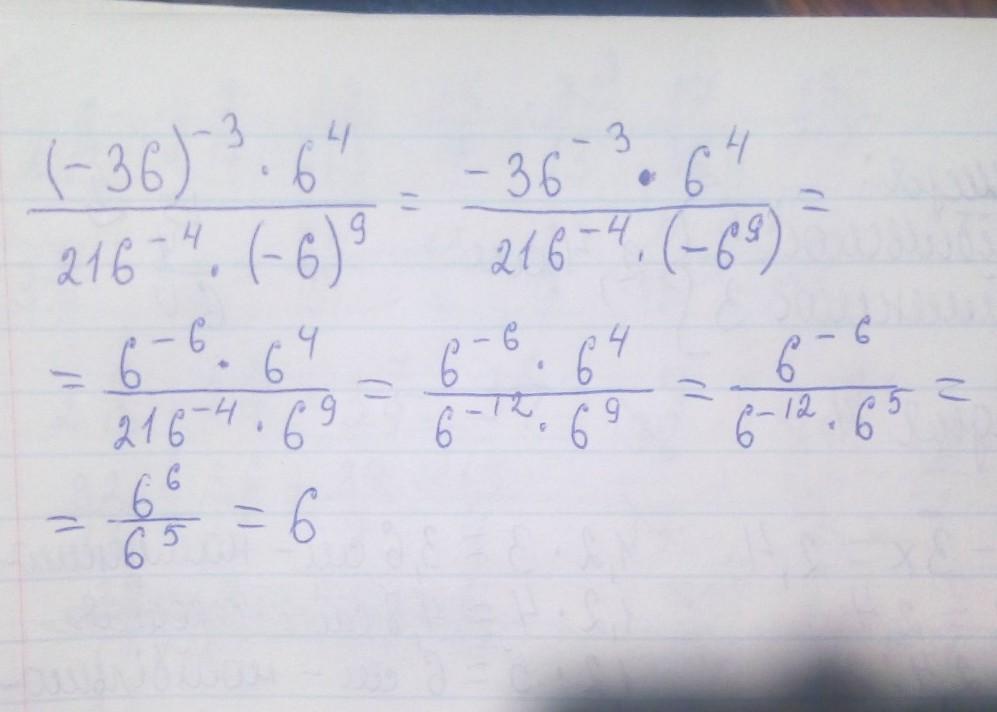 (-36)^{-3} · 6^4 / 216^{-4} · (-6)^9 = -36^{-3} · 6^4 / 216^{-4} · (-6^9) =
= 6^{-6} · 6^4 / 216^{-4} · 6^9 = 6^{-6} · 6^4 / 6^{-12} · 6^9 = 6^{-6} / 6^{-12} · 6^5 =
= 6^6 / 6^5 = 6